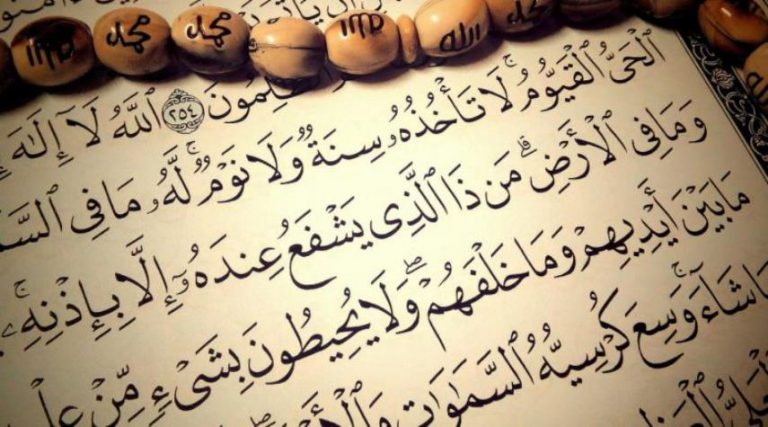 محمد محمد الله
٢٥٤ ٱللَّهُ لَآ إِلَٰهَ
ٱلْحَىُّ ٱلْقَيُّومُ ۚ لَا تَأْخُذُهُۥ سِنَةٌ وَلَا نَوْمٌ ۚ لَّهُۥ مَا فِى ٱلسَّ
وَمَا فِى ٱلْأَرْضِ ۗ مَن ذَا ٱلَّذِى يَشْفَعُ عِندَهُۥٓ إِلَّا بِإِذْنِهِۦ ۚ
مَا بَيْنَ أَيْدِيهِمْ وَمَا خَلْفَهُمْ ۖ وَلَا يُحِيطُونَ بِشَىْءٍ مِّنْ عِلْ
شَآءَ ۚ وَسِعَ كُرْسِيُّهُ ٱلسَّمَٰوَٰتِ وَٱلْأَرْ